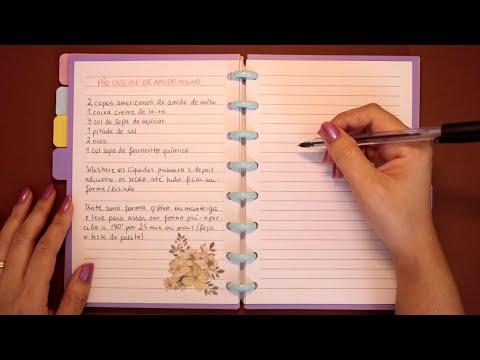 PÃO CASEIRO DE AMIDO MILHO
2 copos americanos de amido de milho
1 caixa creme de leite
3 col de sopa de açúcar
1 pitada de sal
2 ovos
1 col sopa de fermento químico
Misture os líquidos primeiro e depois
adicione os secos até tudo ficar uni-
forme/lisinho
Unte uma forma c/óleo ou manteiga
e leve para assar em forno pré-aque-
cido a 180° por 25 min ou mais/(faça
o teste do palito)